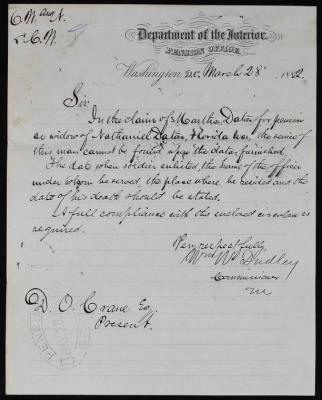 C.M. and N.
L.C.N.
Department of the Interior,
PENSION OFFICE,
Washington, D.C., March 28" 1882
Sir:
In the claim of Martha Dates for pension
as widow of Nathaniel Dates, Florida War, the service of
this man cannot be found upon the data furnished.
The date when soldier enlisted, the name of the officer
under whom he served, the place where he resided and the
date of his death should be stated.
A full compliance with the enclosed circular is
required.
Very respectfully,
Wm W. Dudley
Commissioner
D. O. Crane Esq.
Present.